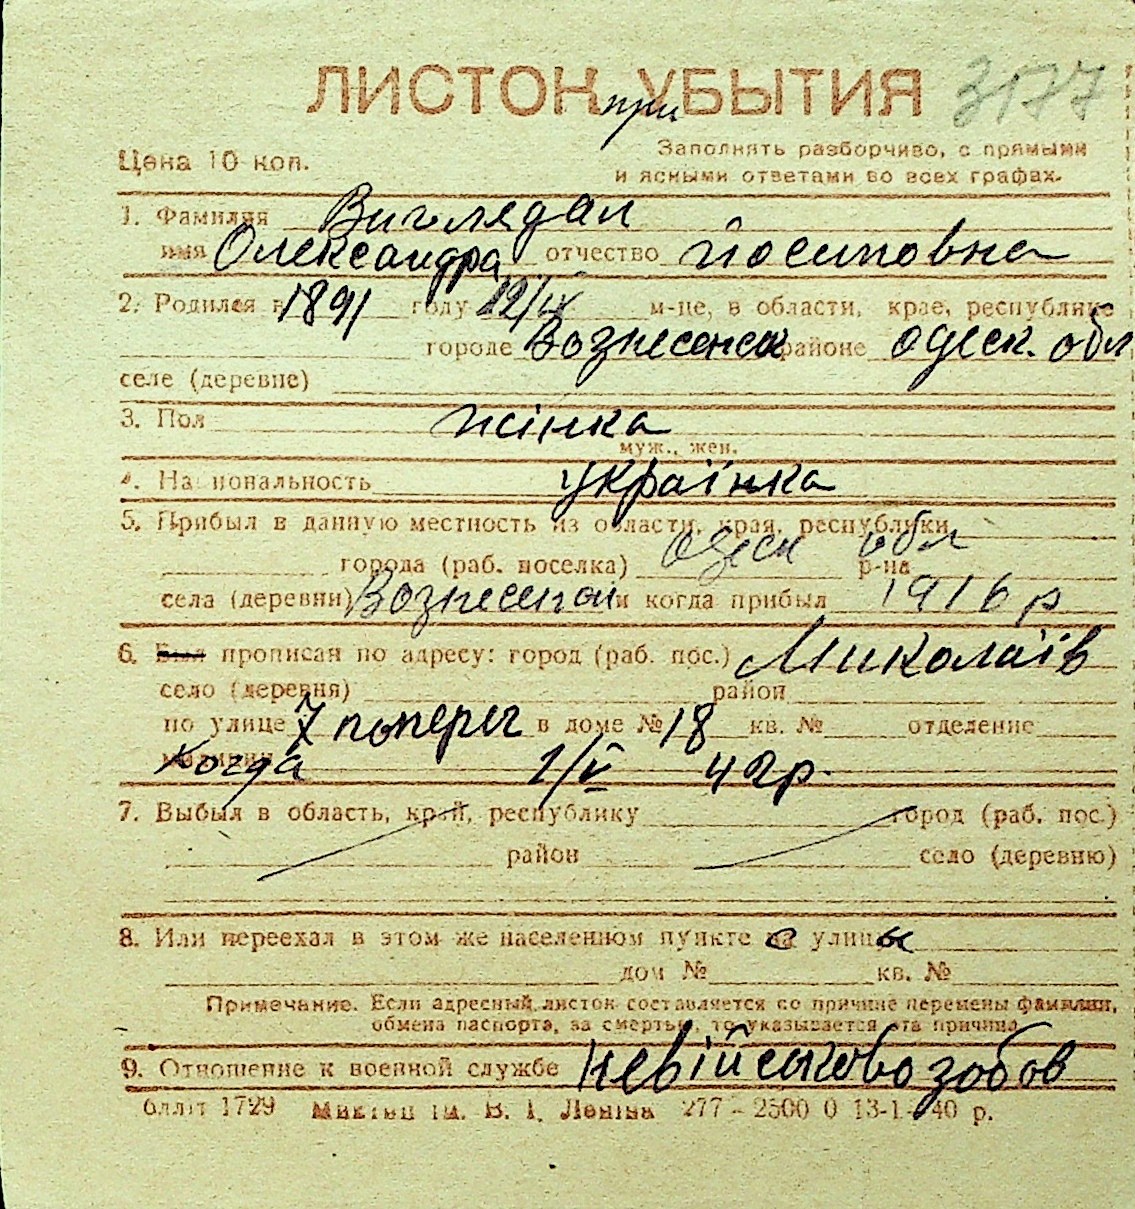 ЛИСТОК УБЫТИЯ 3177
при
Цена 10 коп.
Заполнять разборчиво, с прямыми
и ясными ответами во всех графах.
1. Фамилия Виглядал
имя Олександра отчество Йосиповна
2. Родился в 1891 году 12/IV м-це, в области, крае, республике
городе Вознесенськ районе одеск. обл
селе (деревне)
3. Пол жінка
муж., жен.
4. Национальность українка
5. Прибыл в данную местность из области, края, республики
города (раб. поселка) Одеск обл р-на
села (деревни) Вознесенськ и когда прибыл 1916 р
6. Был прописан по адресу: город (раб. пос.) Миколаїв
село (деревня) район
по улице 7 попереч в доме № 18 кв. № отделение
милиции Когда 1/V 42 р.
7. Выбыл в область, край, республику город (раб. пос.)
район село (деревню)
8. Или переехал в этом же населенном пункте с улицы
дом № кв. №
Примечание. Если адресный листок составляется по причине перемены фамилии,
обмена паспорта, за смертью, то указывается эта причина
9. Отношение к военной службе невійськовозобов
облліт 1729 Миктип ім. В. І. Леніна 277 – 2500 0 13-1- 40 р.